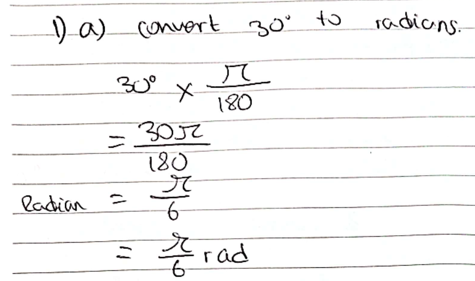 1) a) convert 30° to radians.
30° × π/180
= 30π/180
Radian = π/6
= π/6 rad